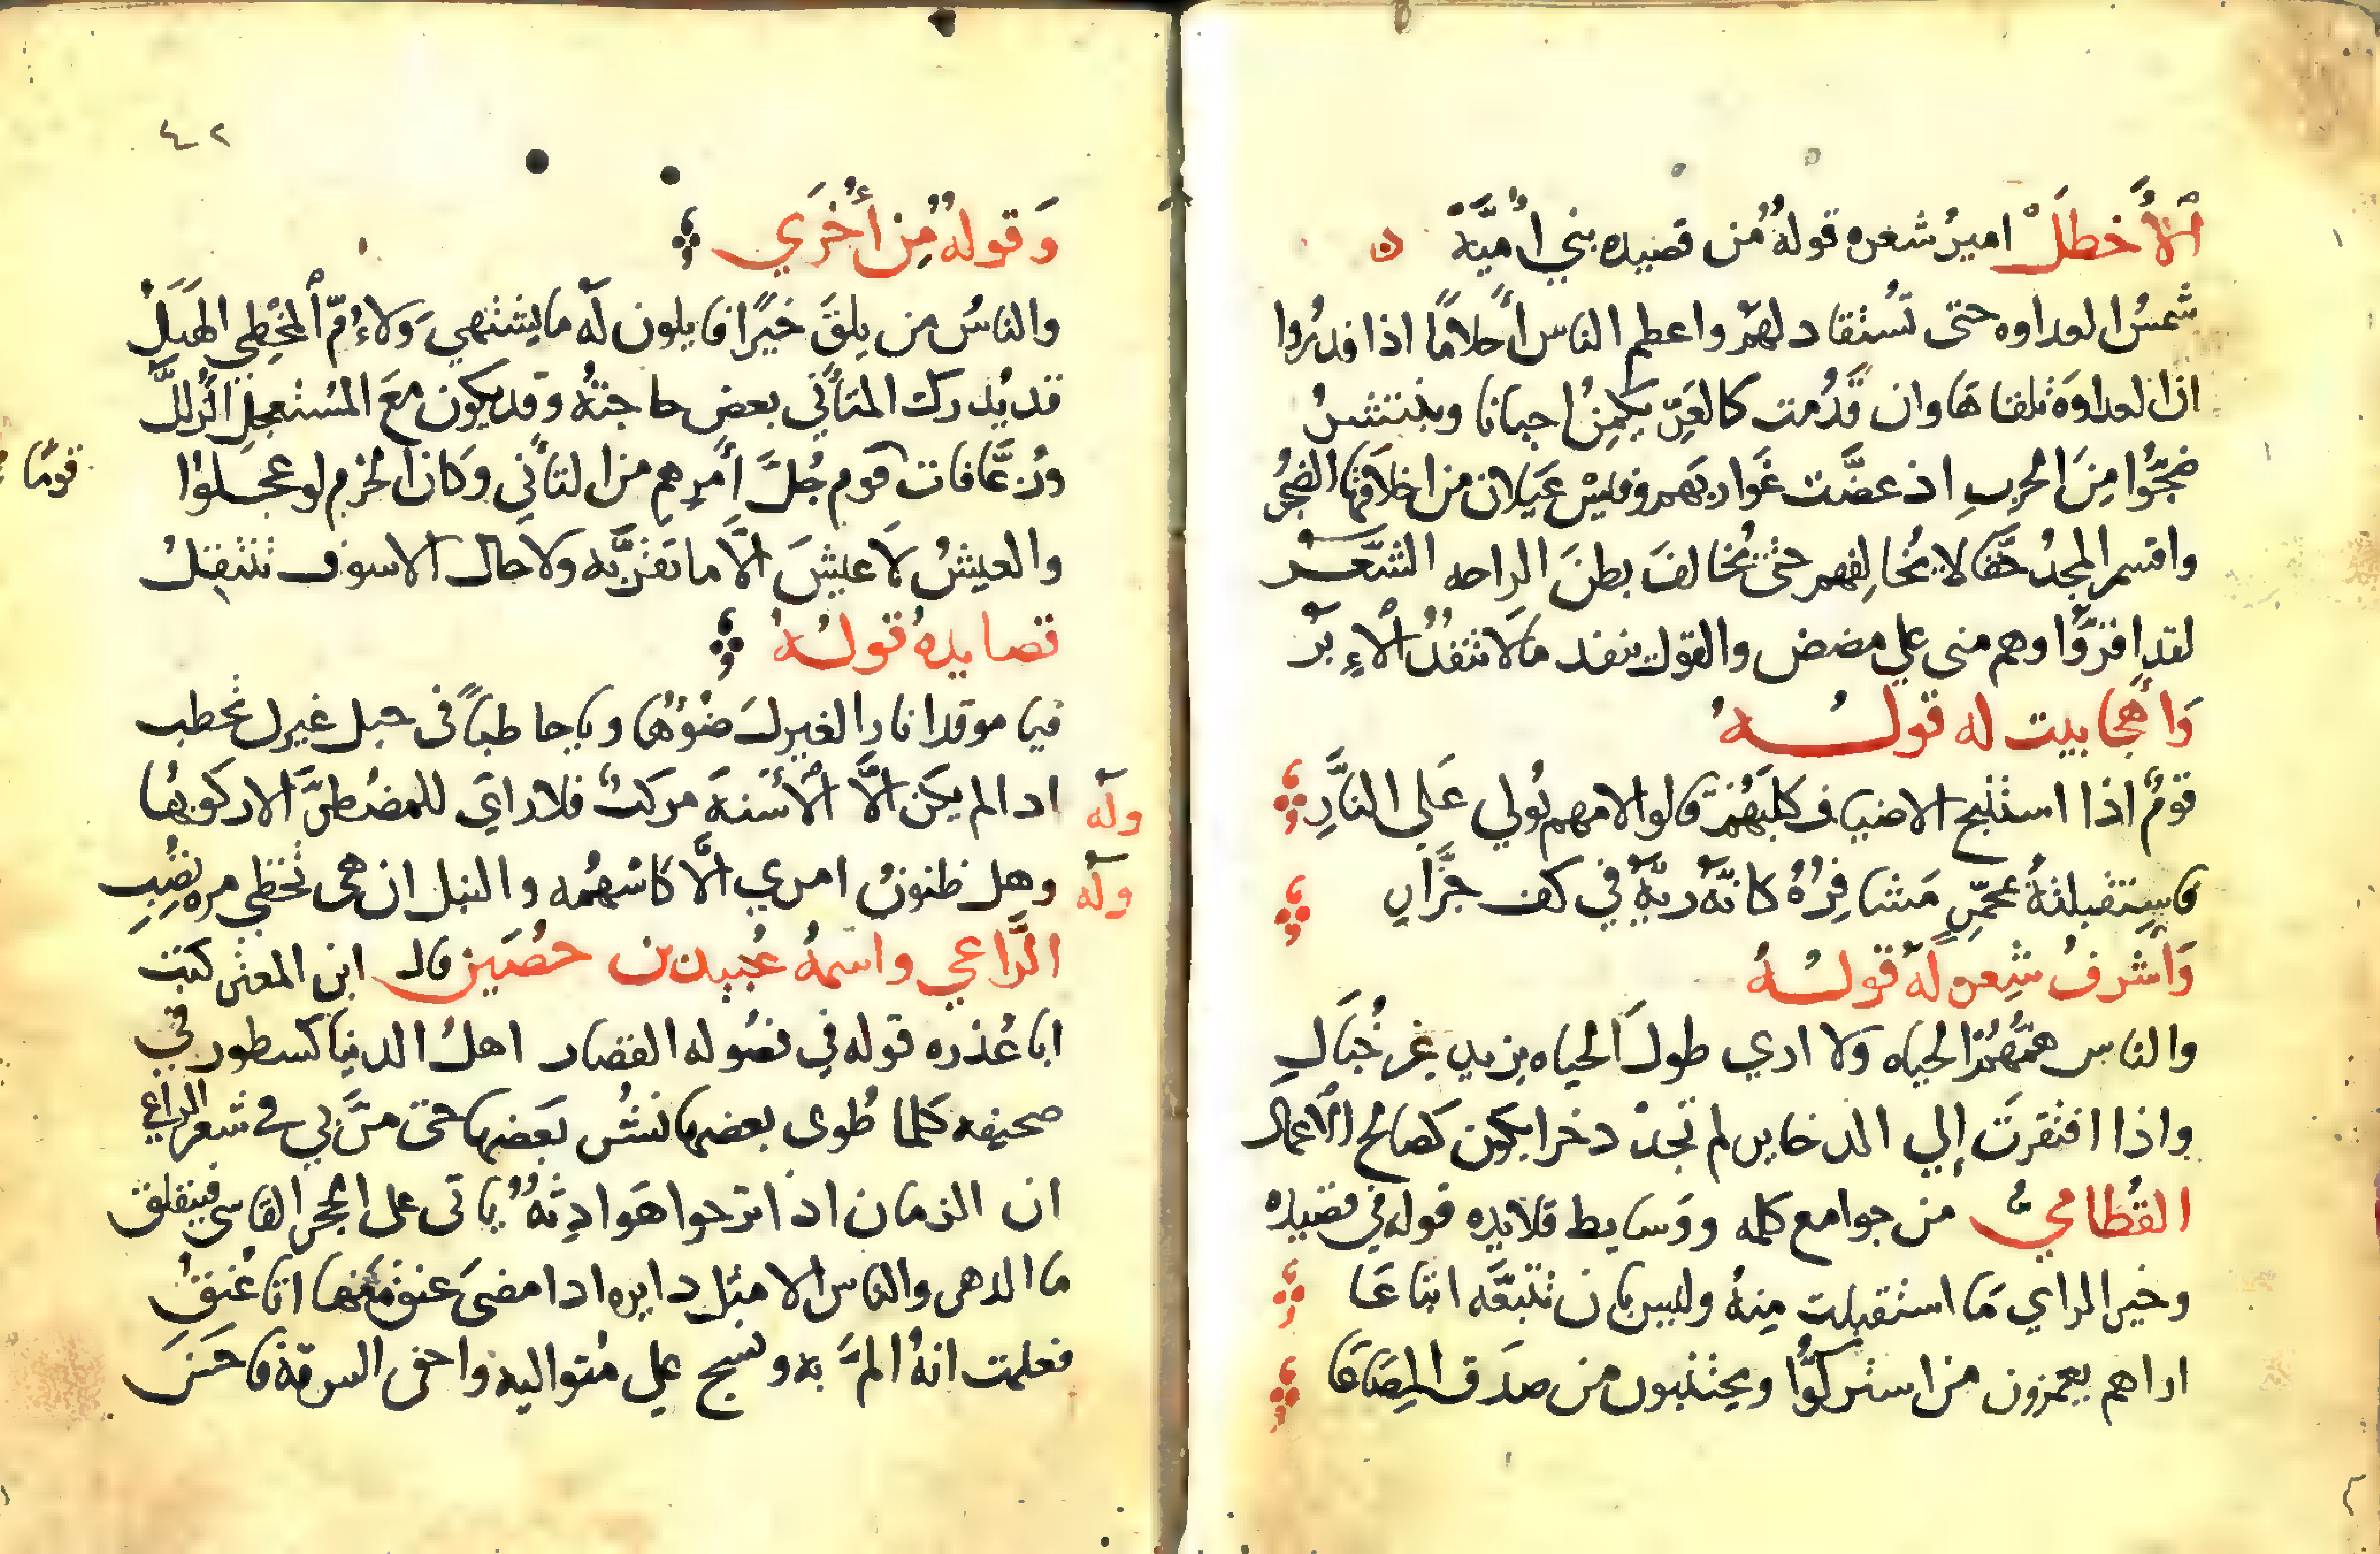 الأخطل امير شعره قوله من قصيده بني أمية
شمس العداوه حتى تستقاد لهم واعظم الناس أحلامًا اذا قدروا
ان العداوة تلقاها وان قدمت كالعر يكمن احيانا وينتشر
ضجوا من الحرب اذ عضت غواربهم وقيس عيلان من اخلاقها الضجر
واقسم المجد حقا لا يحالفهم حتى يحالف بطن الراحه الشعر
لقد اقروا وهم مني على مضض والقول ينفد ما لا تنفد الإبر
وأهجا بيت له قوله
قوم اذا استنبح الاضياف كلبهم قالوا لامهم بولي على النار
وأشرف شعره له قوله
والناس همهم الحياه ولا ارى طول الحياه يزيد غير خبال
واذا افتقرت إلي الدخاير لم تجد دخرا يكون كصالح الاعمال
القطامي من جوامع كلمه ووسايط قلايده قوله في قصيده
وخير الراي ما استقبلت منه وليس بان تتبعه اتباعا
اراهم يغمزون من استركوا ويجتنبون من صدق المصاعا
٤٢
وقوله من أخرى
والناس من يلق خيرًا قايلون له ما يشتهي ولأم المخطي الهبل
قد يدرك المتأني بعض حاجته وقد يكون مع المستعجل الزلل
وربما فات قوم جل أمرهم من التأني وكان الحزم لو عجلوا
قومًا
والعيش لا عيش الا ما تقر به ولا حال الا سوف تنتقل
قصايده قوله
فيا موقدا نارا لغيرك ضوؤها ويا حاطباً في حبل غيرك تحطب
وله ادا لم يكن الا الأسنة مركب فلا راي للمضطر الا ركوبها
وله وهل ظنون امري الا كاسهمه والنبل ان هي تخطي مره تصب
الراعي واسمه عبيد بن حصين قال ابن المعتز كنت
ابا عذره قوله في فصوله القصار اهل الدنيا كسطور في
صحيفه كلما طوى بعضها نشر بعضها حتى مر بي في شعر الراعي
ان الزمان اذا ترحوا هوادثه ياتى على الحجر القاسي فينفلق
ما الدهر والناس الا مثل دايره ادا مضى عنق منها اتا عنق
فعلمت انه الم به ونسج على منواليه واخفى السرقة فاحسن